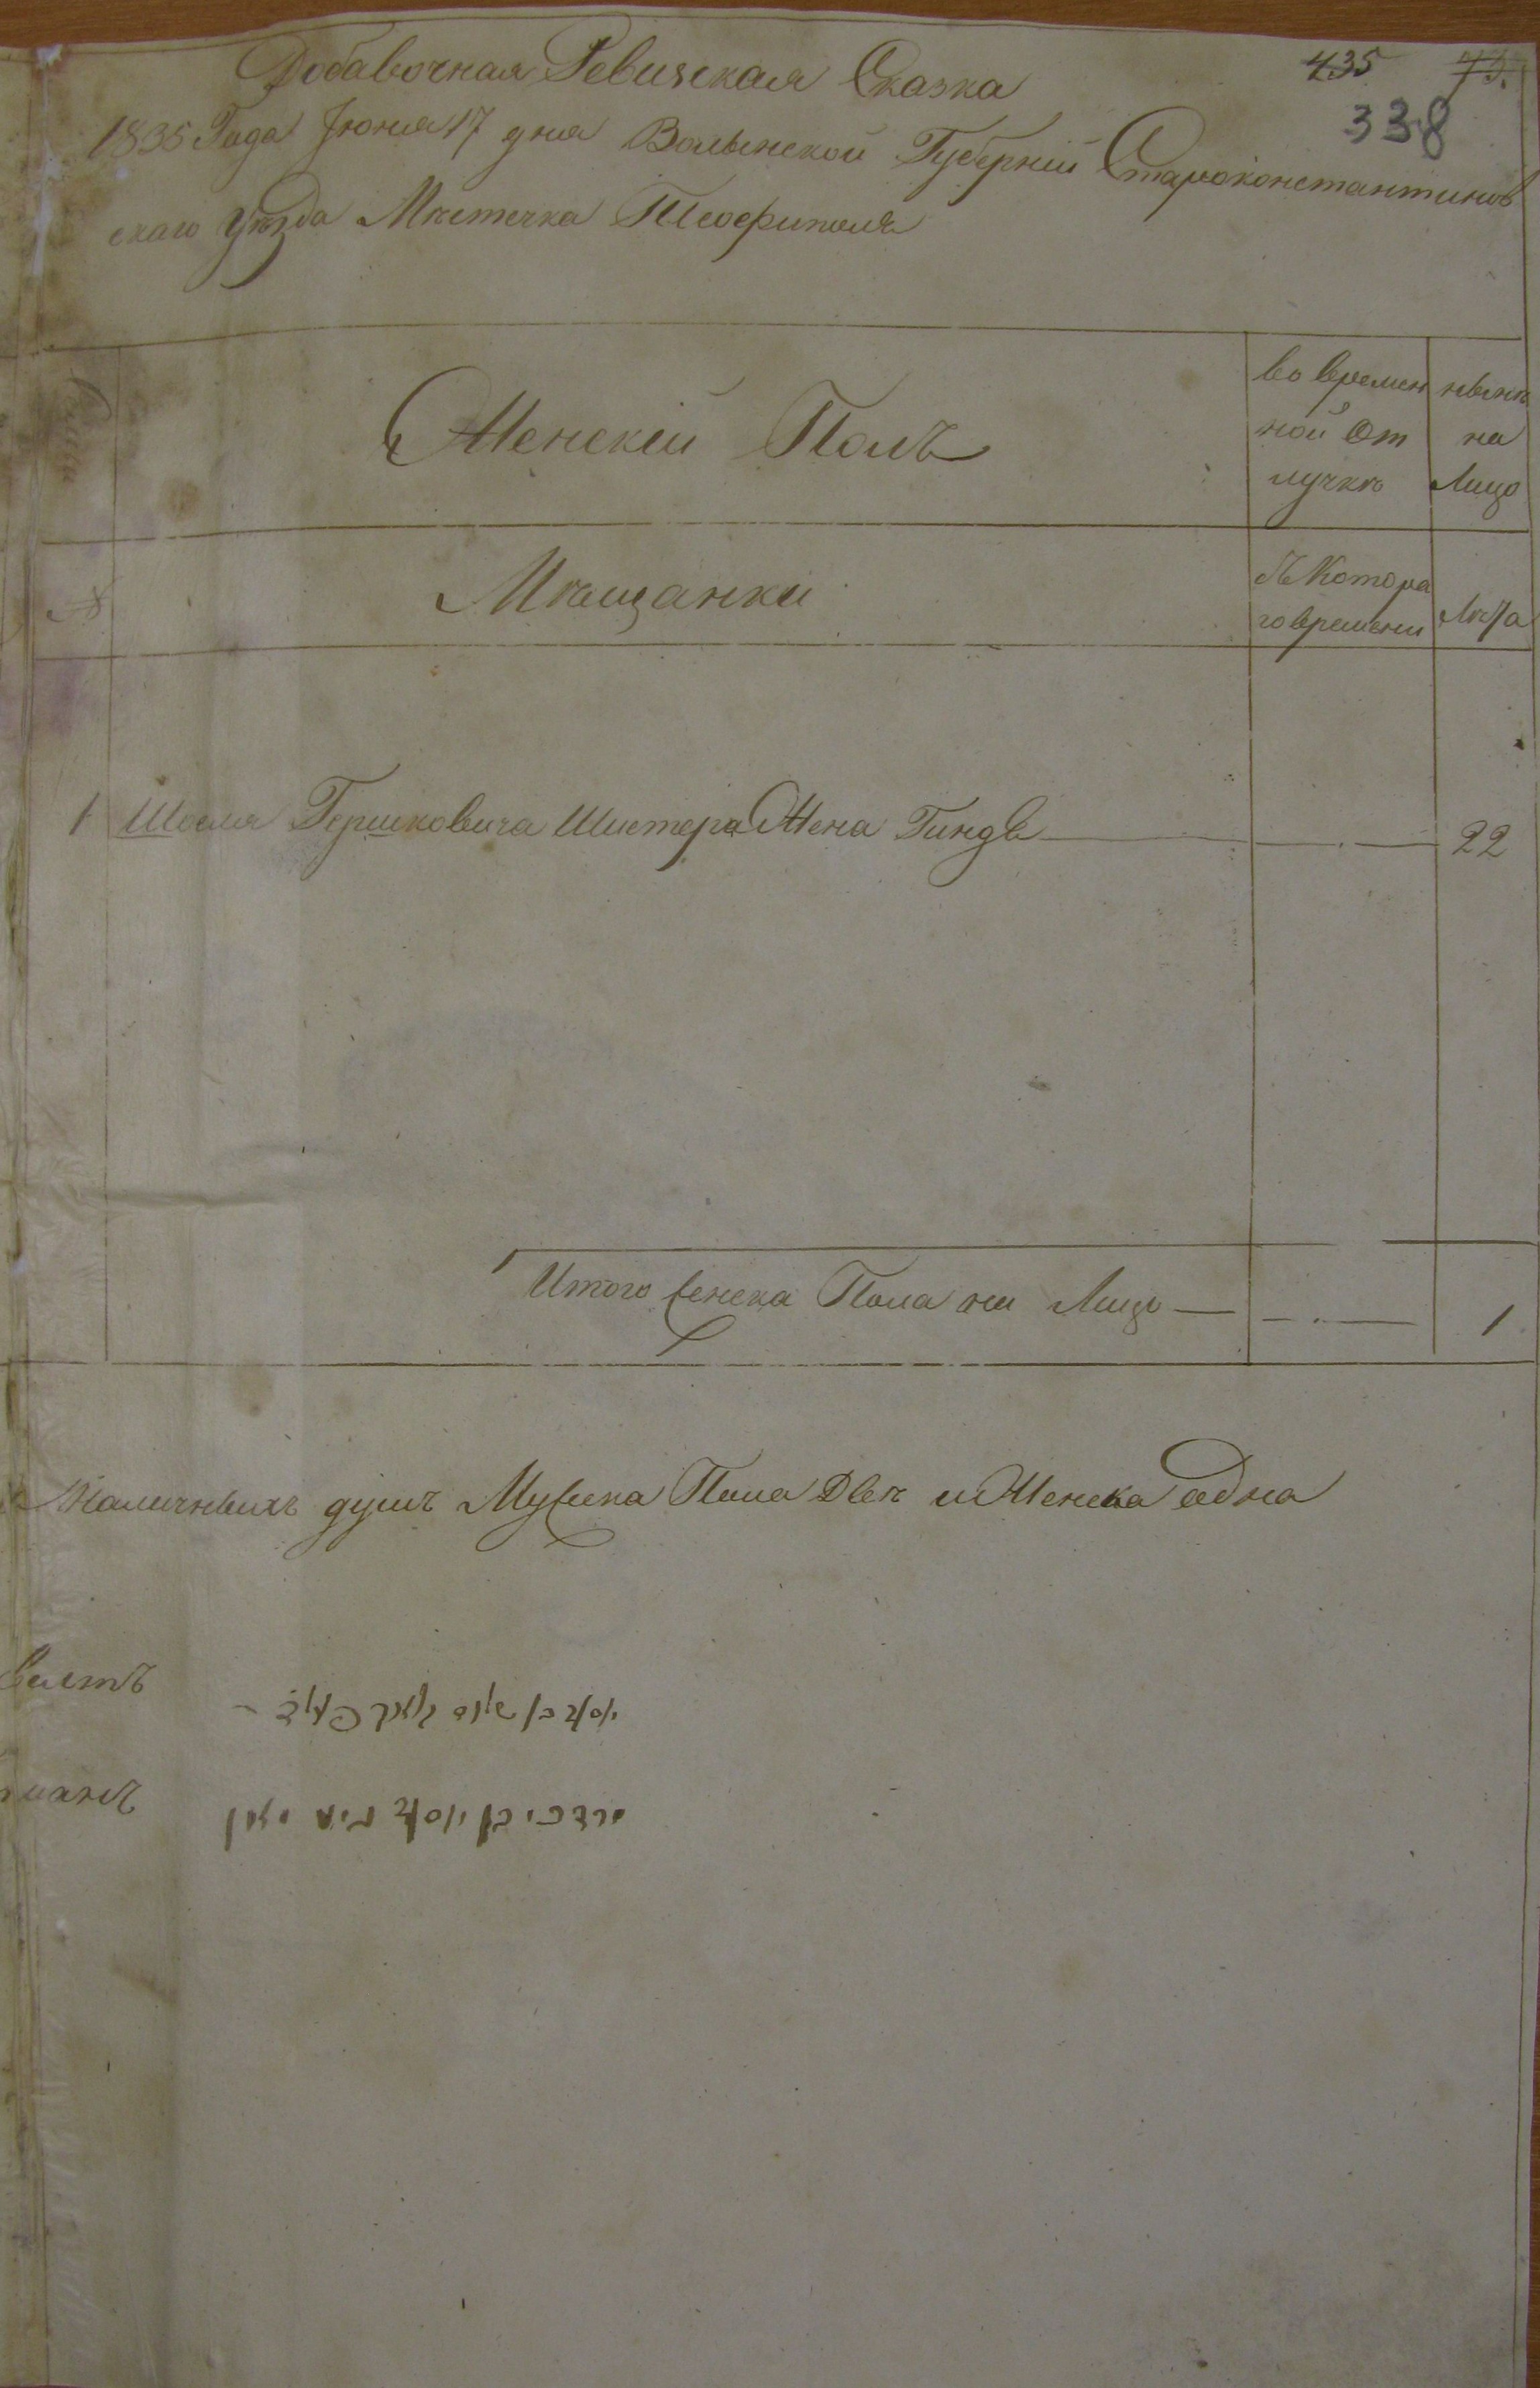 Добавочная Ревизская Сказка
435
338
1835 Года Июня 17 дня Волынской Губерніи Староконстантинов
скаго уѣзда Мѣстечка Теофиполя
Женскій Полъ
во времен
ной От
лучкѣ
нынѣ
на
Лицо
№
Мѣщанки
Съ Котора
го времени
Лѣта
1 Шоеля Гершковича Шистера Жена Гинда 22
Итого женска Пола на Лицо 1
Наличныхъ душъ Мужска Пола Двѣ и Женска одна
יוסף בן
מרדכי בן יוסף